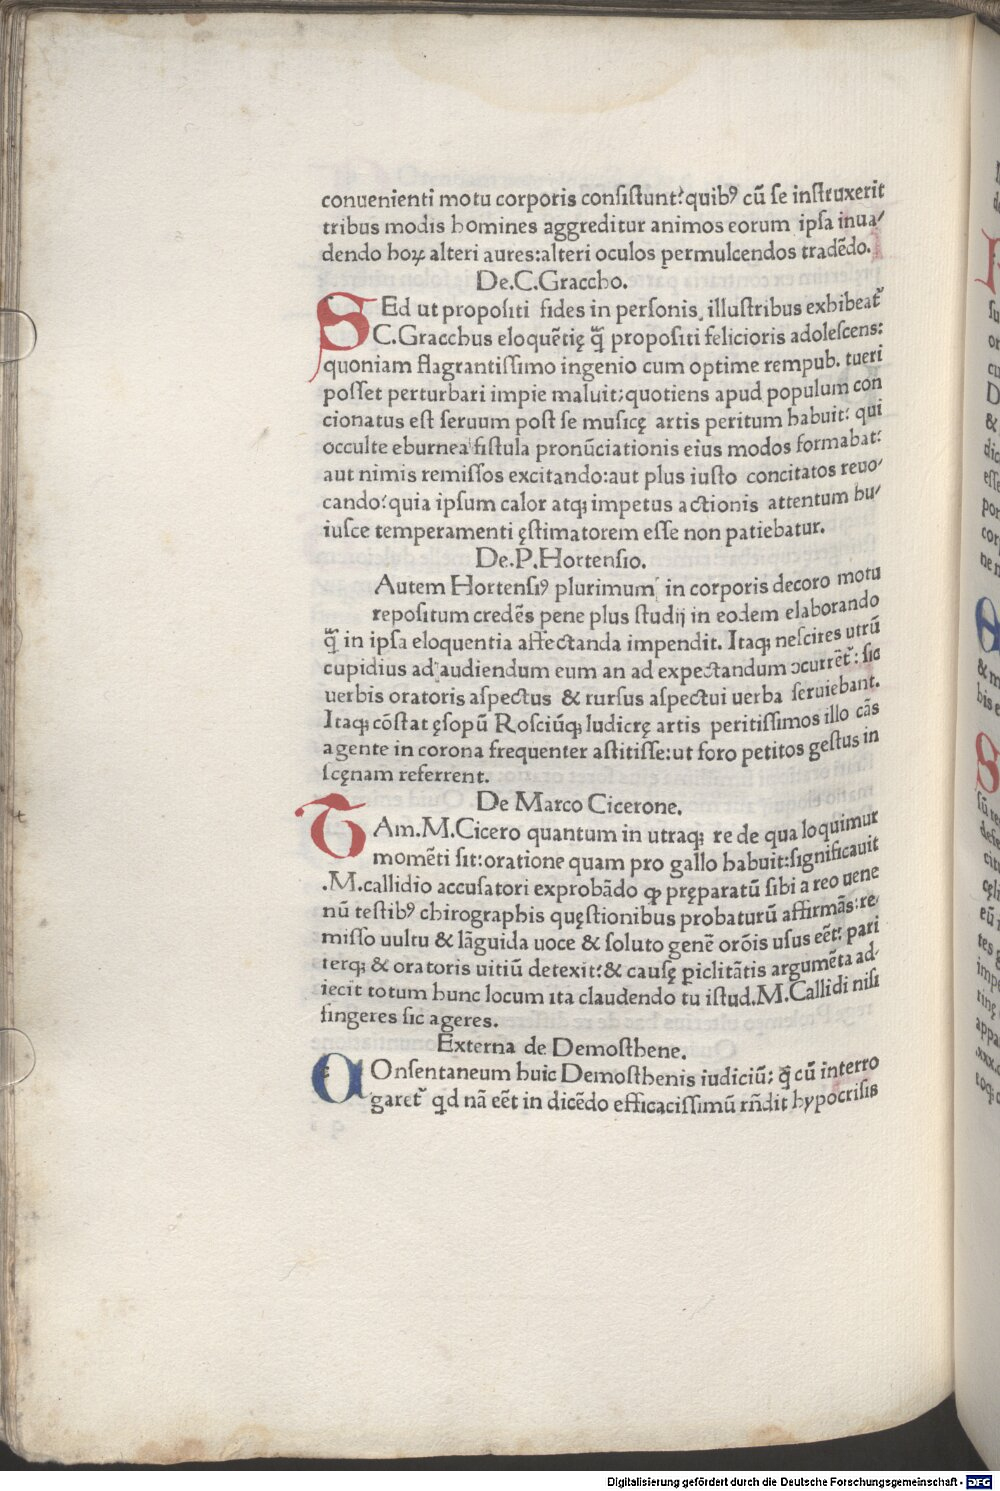 conuenienti motu corporis consistunt: quibꝰ cū se instruxerit
tribus modis homines aggreditur animos eorum ipsa inua/
dendo hoꝝ alteri aures: alteri oculos ꝑmulcendos tradēdo.
De.C.Graccho.
SEd ut propositi fides in personis illustribus exhibeat᷑
C.Gracchus eloquētię q̄ꝫ propositi felicioris adolescens:
quoniam flagrantissimo ingenio cum optime rempub. tueri
posset perturbari impie maluit: quotiens apud populum con
cionatus est seruum post se musicę artis peritum habuit: qui
occulte eburnea fistula pronūciationis eius modos formabat:
aut nimis remissos excitando: aut plus iusto concitatos reuo/
cando: quia ipsum calor atqꝫ impetus actionis attentum hu/
iusce temperamenti ęstimatorem esse non patiebatur.
De.P.Hortensio.
Autem Hortensiꝰ plurimum in corporis decoro motu
repositum credēs pene plus studij in eodem elaborando
q̄ꝫ in ipsa eloquentia affectanda impendit. Itaqꝫ nescires utrū
cupidius ad audiendum eum an ad expectandum ↄcurrēt᷑: sic
uerbis oratoris aspectus & rursus aspectui uerba seruiebant.
Itaqꝫ cōstat ęsopū Rosciūqꝫ ludicrę artis peritissimos illo cās
agente in corona frequenter astitisse: ut foro petitos gestus in
scęnam referrent.
De Marco Cicerone.
TAm.M.Cicero quantum in utraqꝫ re de qua loquimur
momēti sit: oratione quam pro gallo habuit: significauit
.M.callidio accusatori exprobādo ꝙ pręparatū sibi a reo uene
nū testibꝰ chirographis quęstionibus probaturū affirmās: re/
misso uultu & lāguida uoce & soluto genē orōis usus eēt: pari
terqꝫ & oratoris uitiū detexit: & causę ꝑiclitātis argumēta ad/
iecit totum hunc locum ita claudendo tu istud.M.Callidi nisi
fingeres sic ageres.
Externa de Demosthene.
COnsentaneum huic Demosthenis iudiciū: q̄ cū interro
garet᷑ qd nā eēt in dicēdo efficacissimū rn̄dit hypocrisis
Digitalisierung gefördert durch die Deutsche Forschungsgemeinschaft - DFG